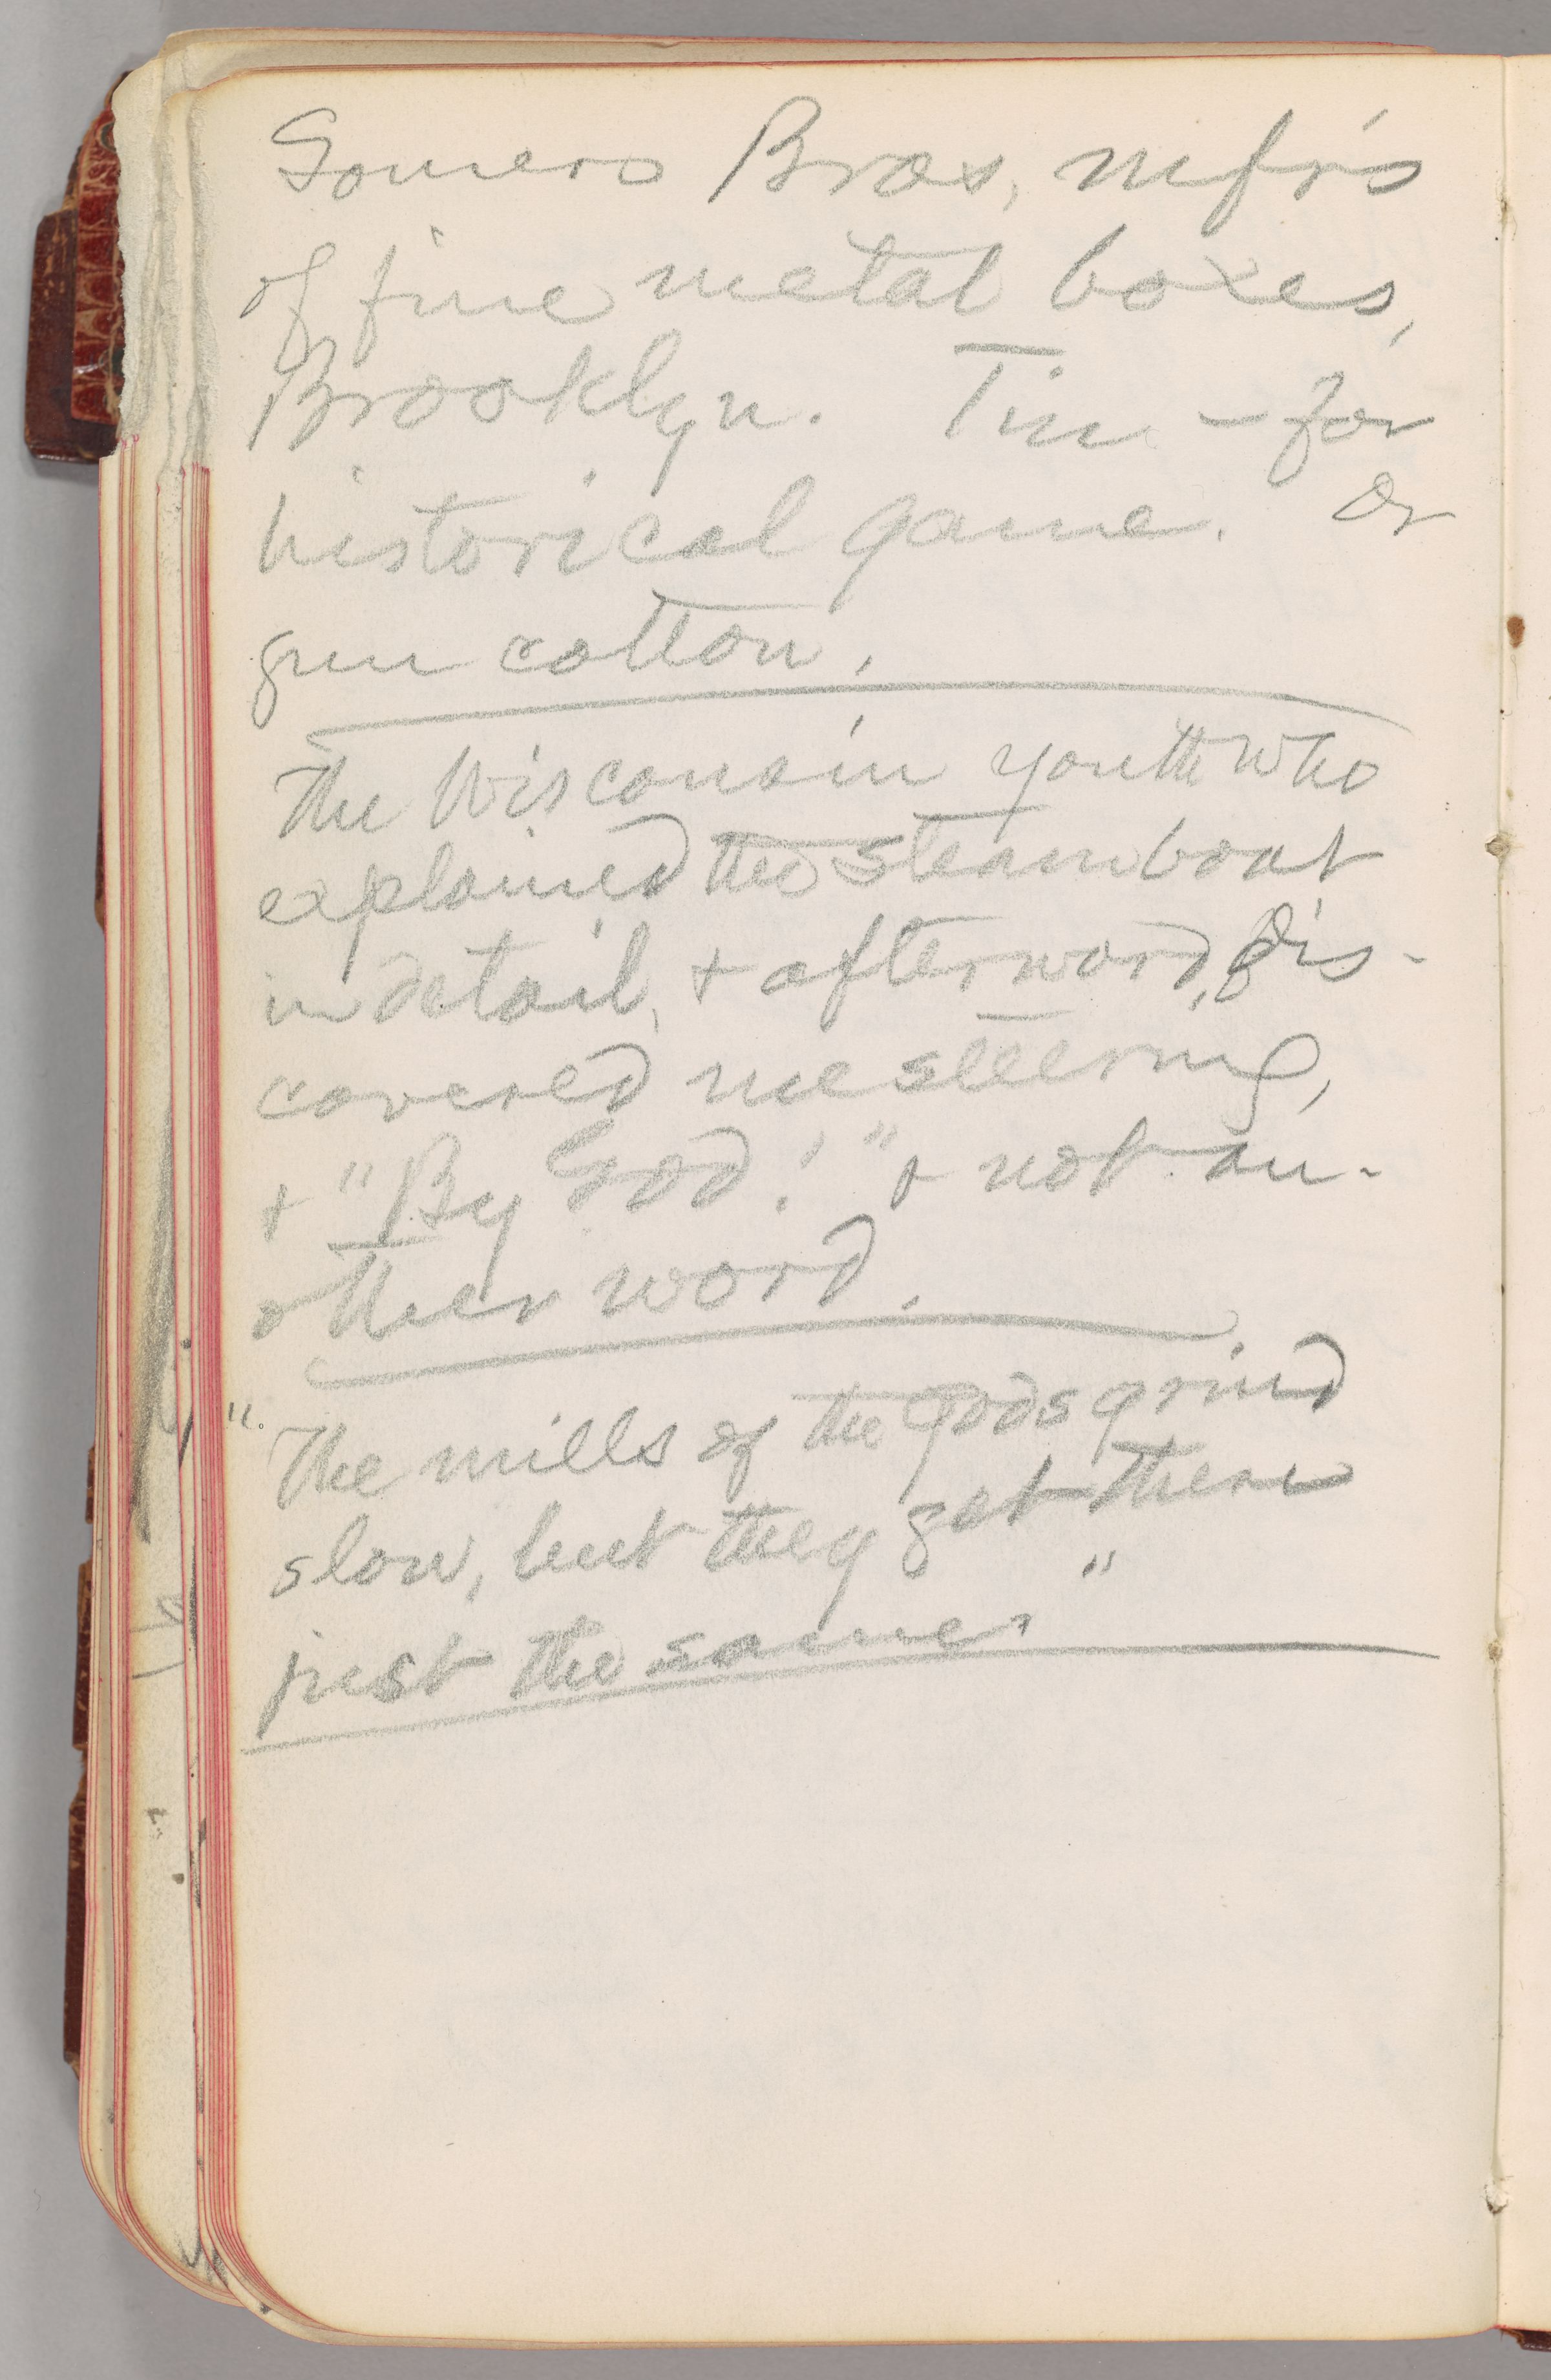 Somers Bros, mfr's
of fine metal boxes,
Brooklyn. Tin – for
historical game. Or
gun cotton.
The Wisconsin youth who
explained the steamboat
in detail, & afterward, dis-
covered me steering,
& "By God!" & not an-
other word.
"The mills of the gods grind
slow, but they get there
just the same."